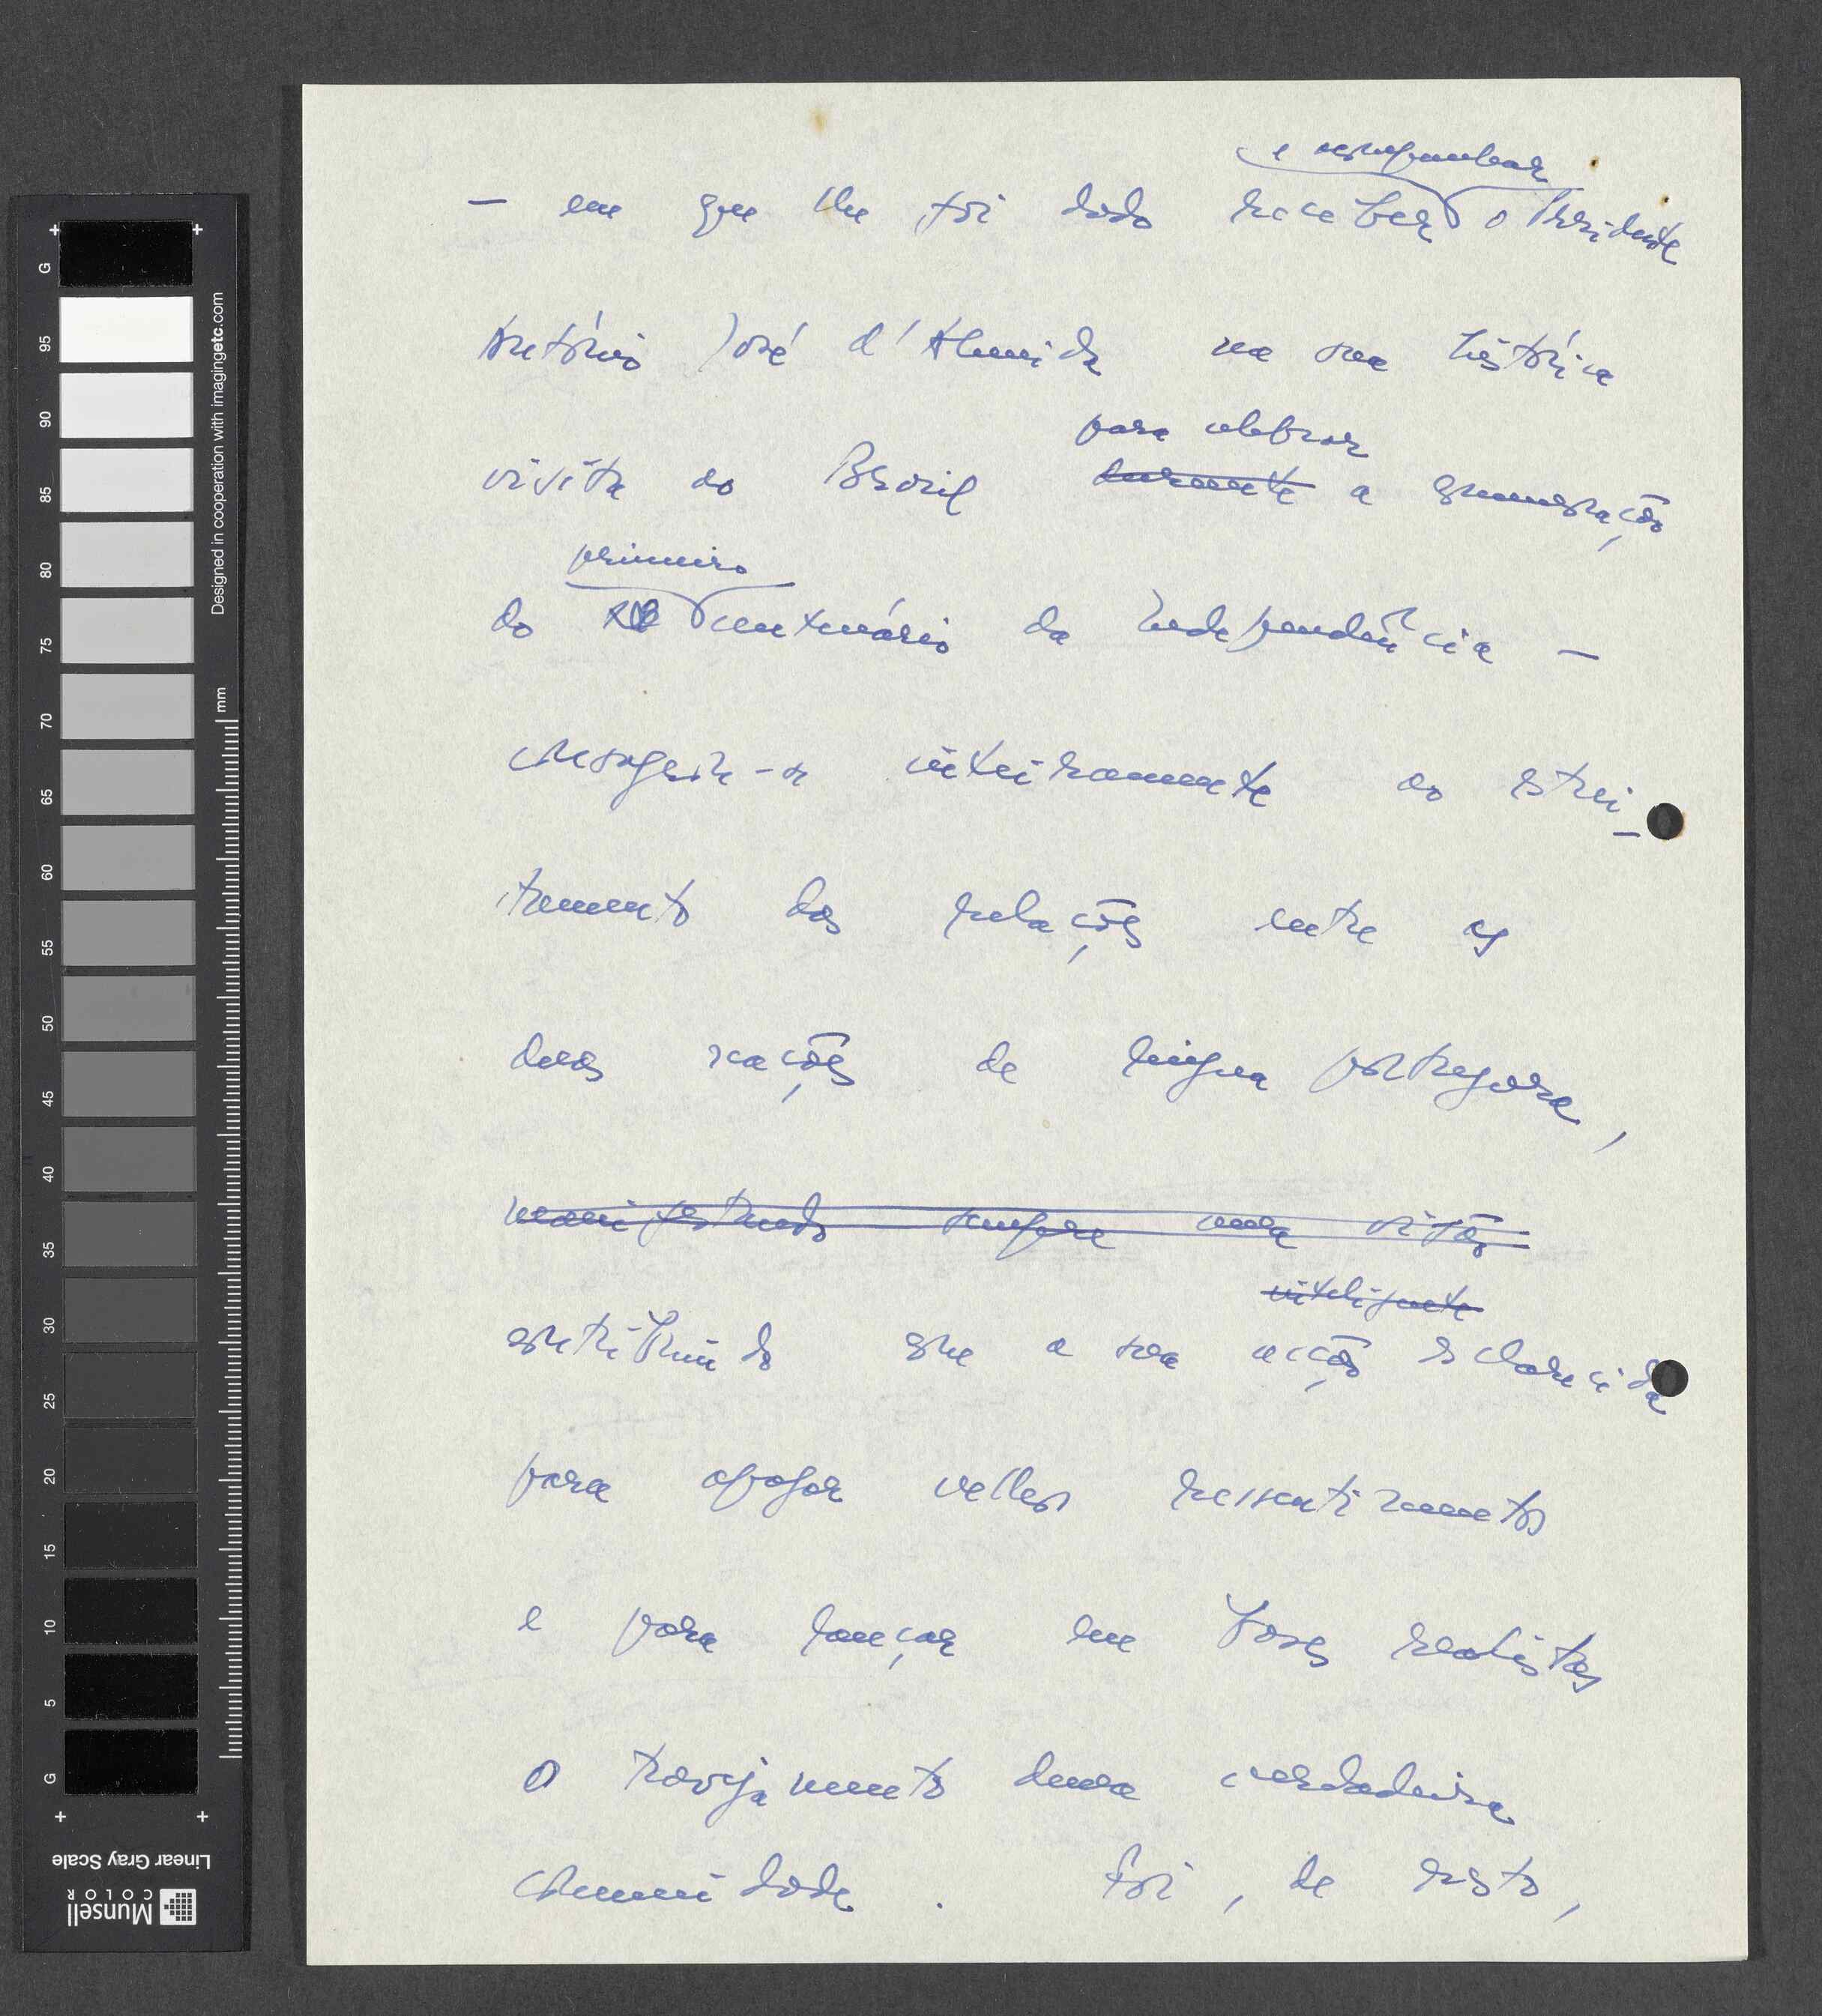 e acompanhar
– em que lhe foi dado receber o Presidente
António José d'Almeida na sua histórica
para celebrar
visita ao Brasil durante a comemoração
primeiro
do centenário da Independência –
consagrou-se inteiramente ao estrei-
tamento das relações entre as
duas nações de língua portuguesa,
manifestando sempre uma visão
inteligente
contribuindo com a sua acção esclarecida
para apagar velhos ressentimentos
e para lançar em bases realistas
o travejamento duma verdadeira
comunidade. Foi, de resto,
G 95 90 85 80 75 70 65 60 55 50 45 40 35 30 25 20 15 10 5 G
Designed in cooperation with imagingetc.com
mm
Linear Gray Scale
Munsell
COLOR